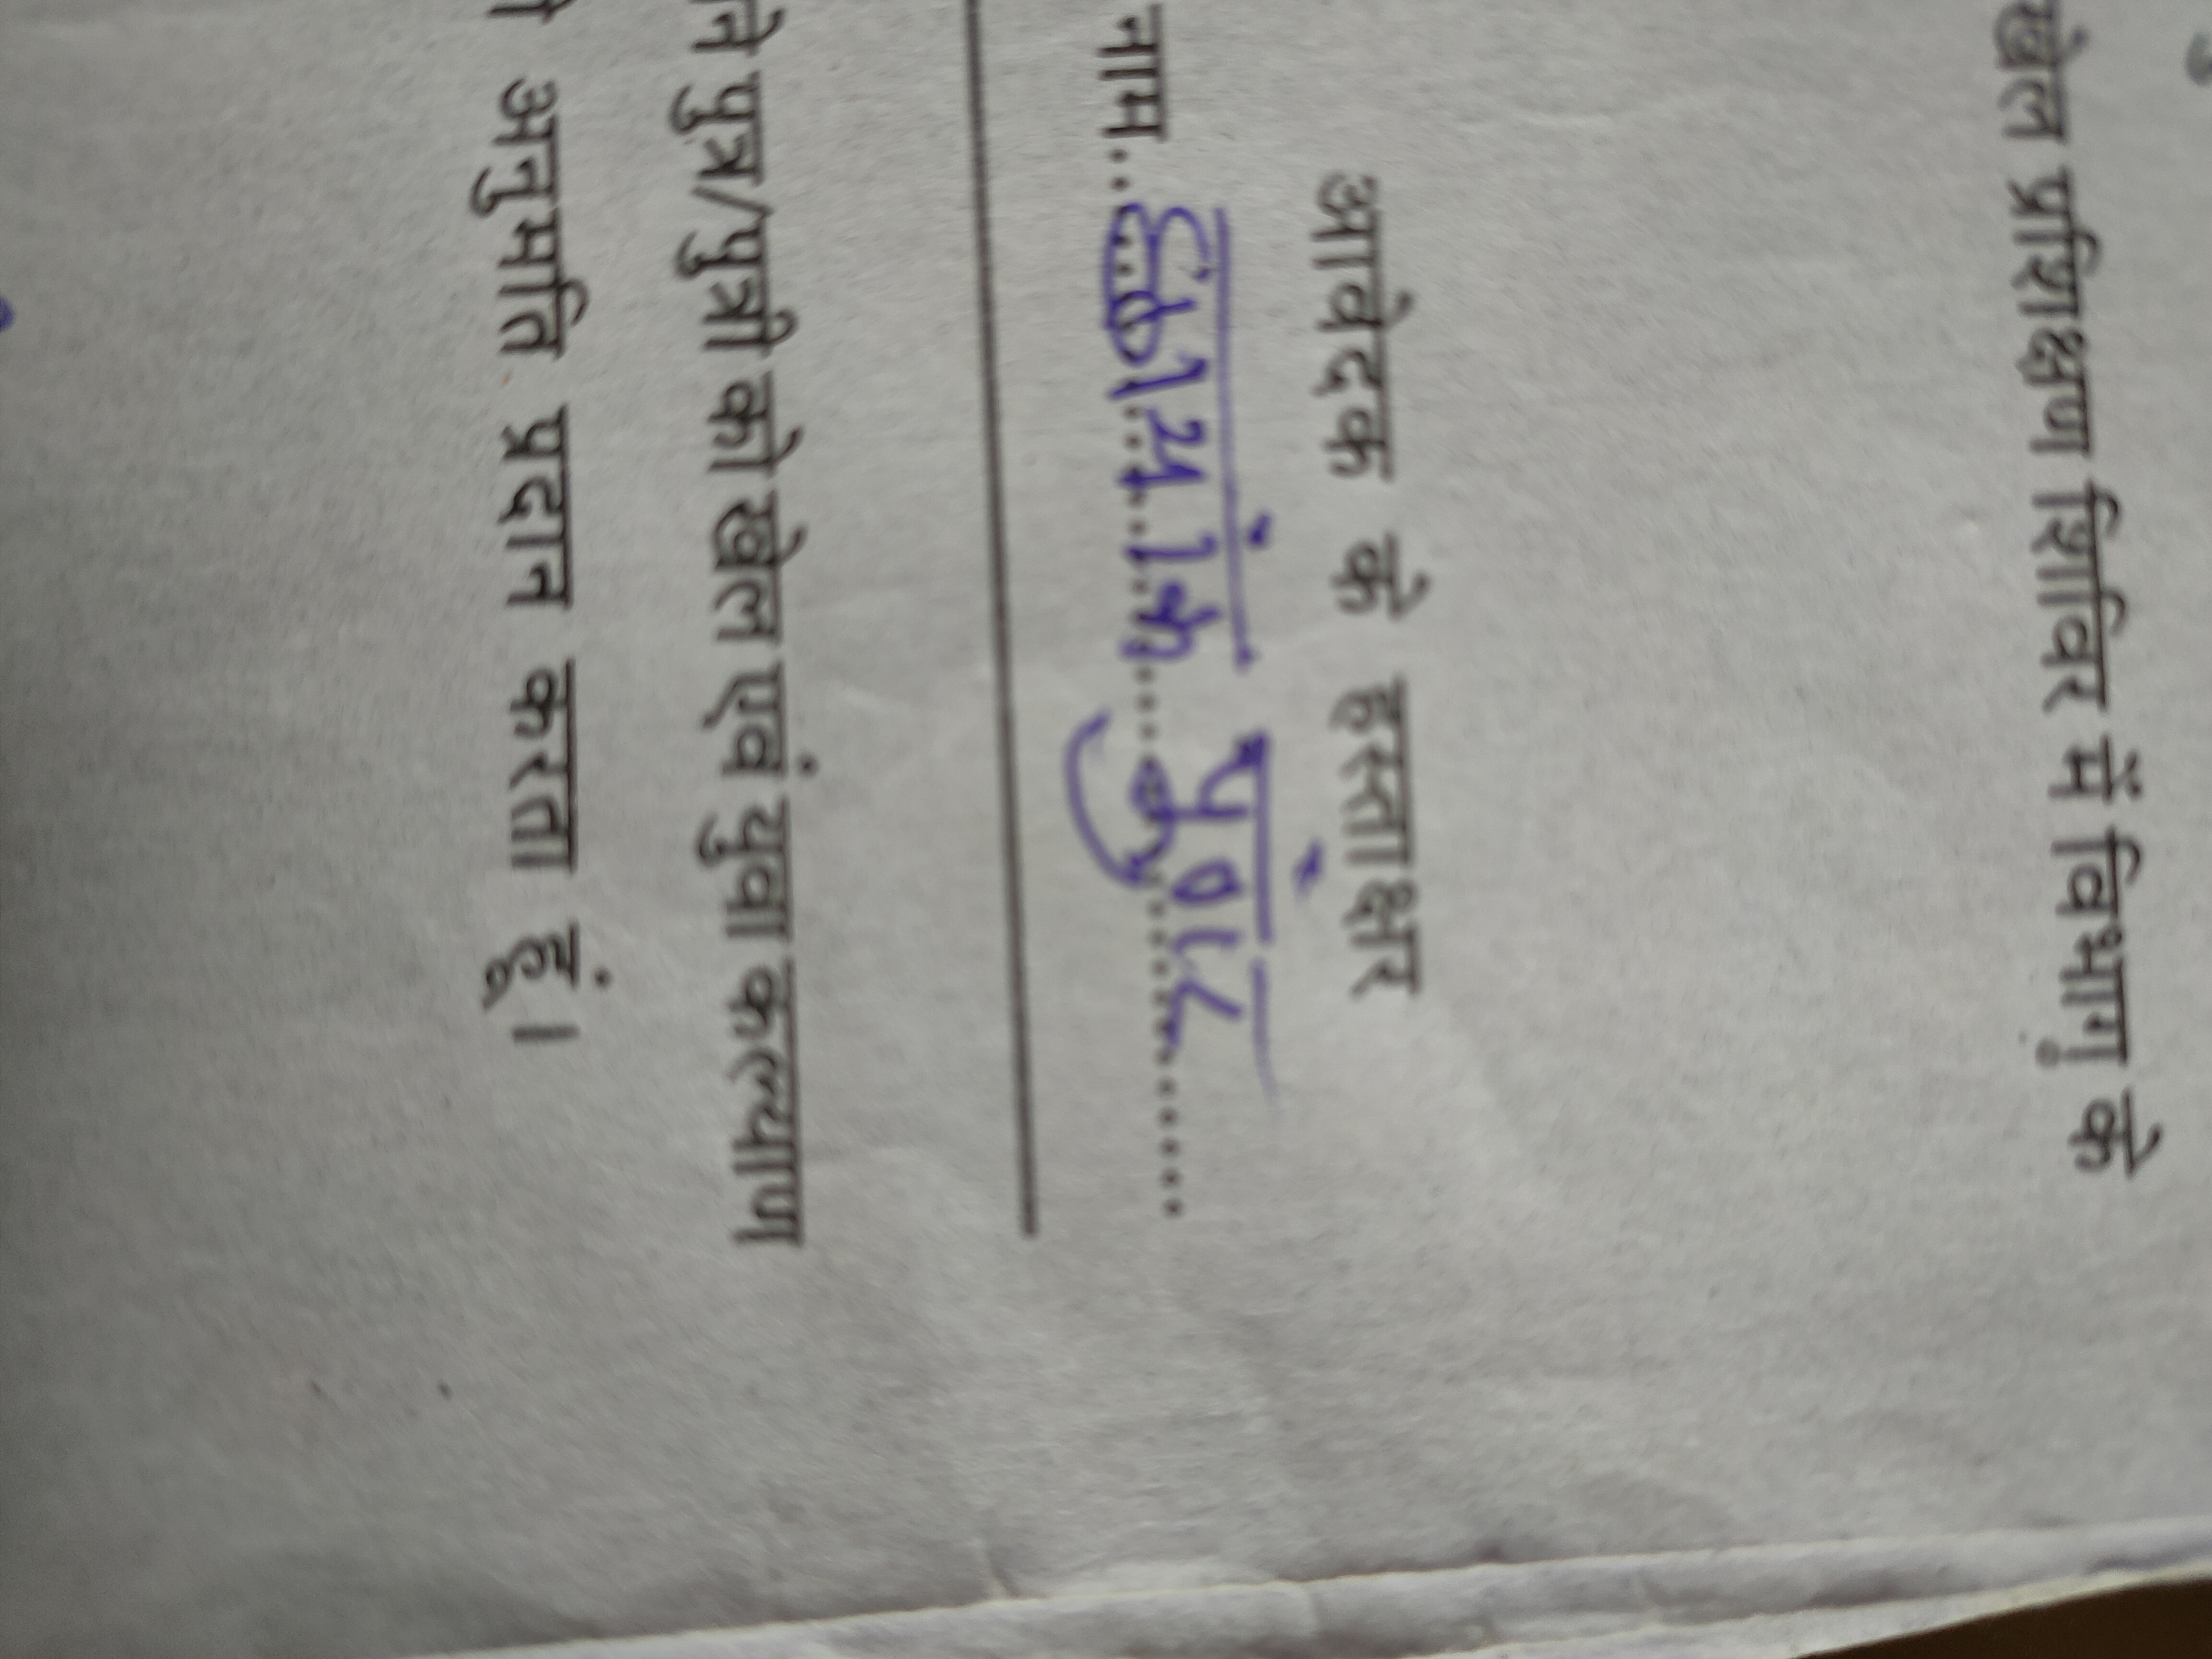 खेल प्रशिक्षण शिविर में विभाग के
आवेदक के हस्ताक्षर
नाम..................
पुत्र/पुत्री को खेल एवं युवा कल्याण
अनुमति प्रदान करता हूं।